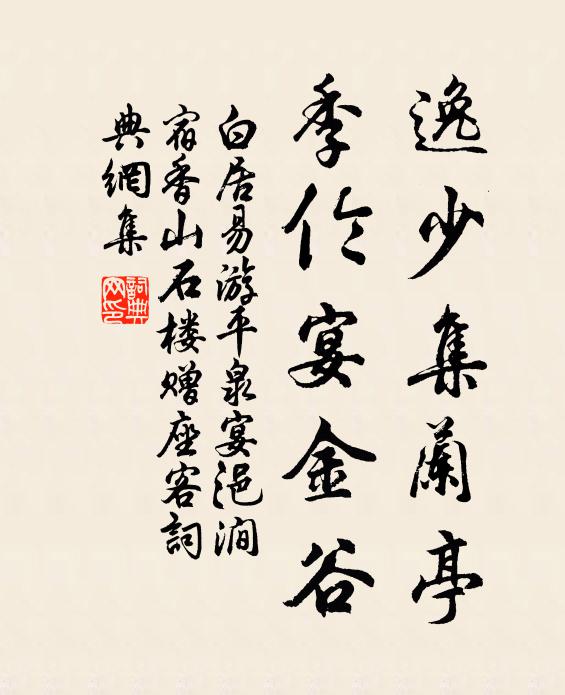 逸少集蘭亭
季伦宴金谷
白居易游平泉宴浥涧
宿香山石楼赠座客詞
典網集
詞典
网印